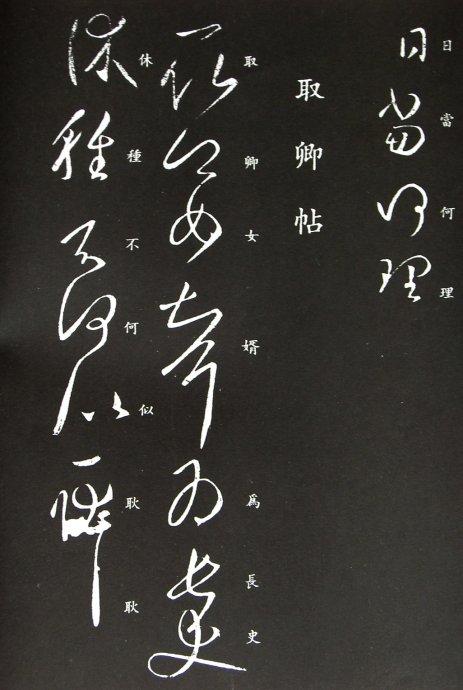 日當何理
取卿帖
取卿女婿為長史
休種不何似耿耿